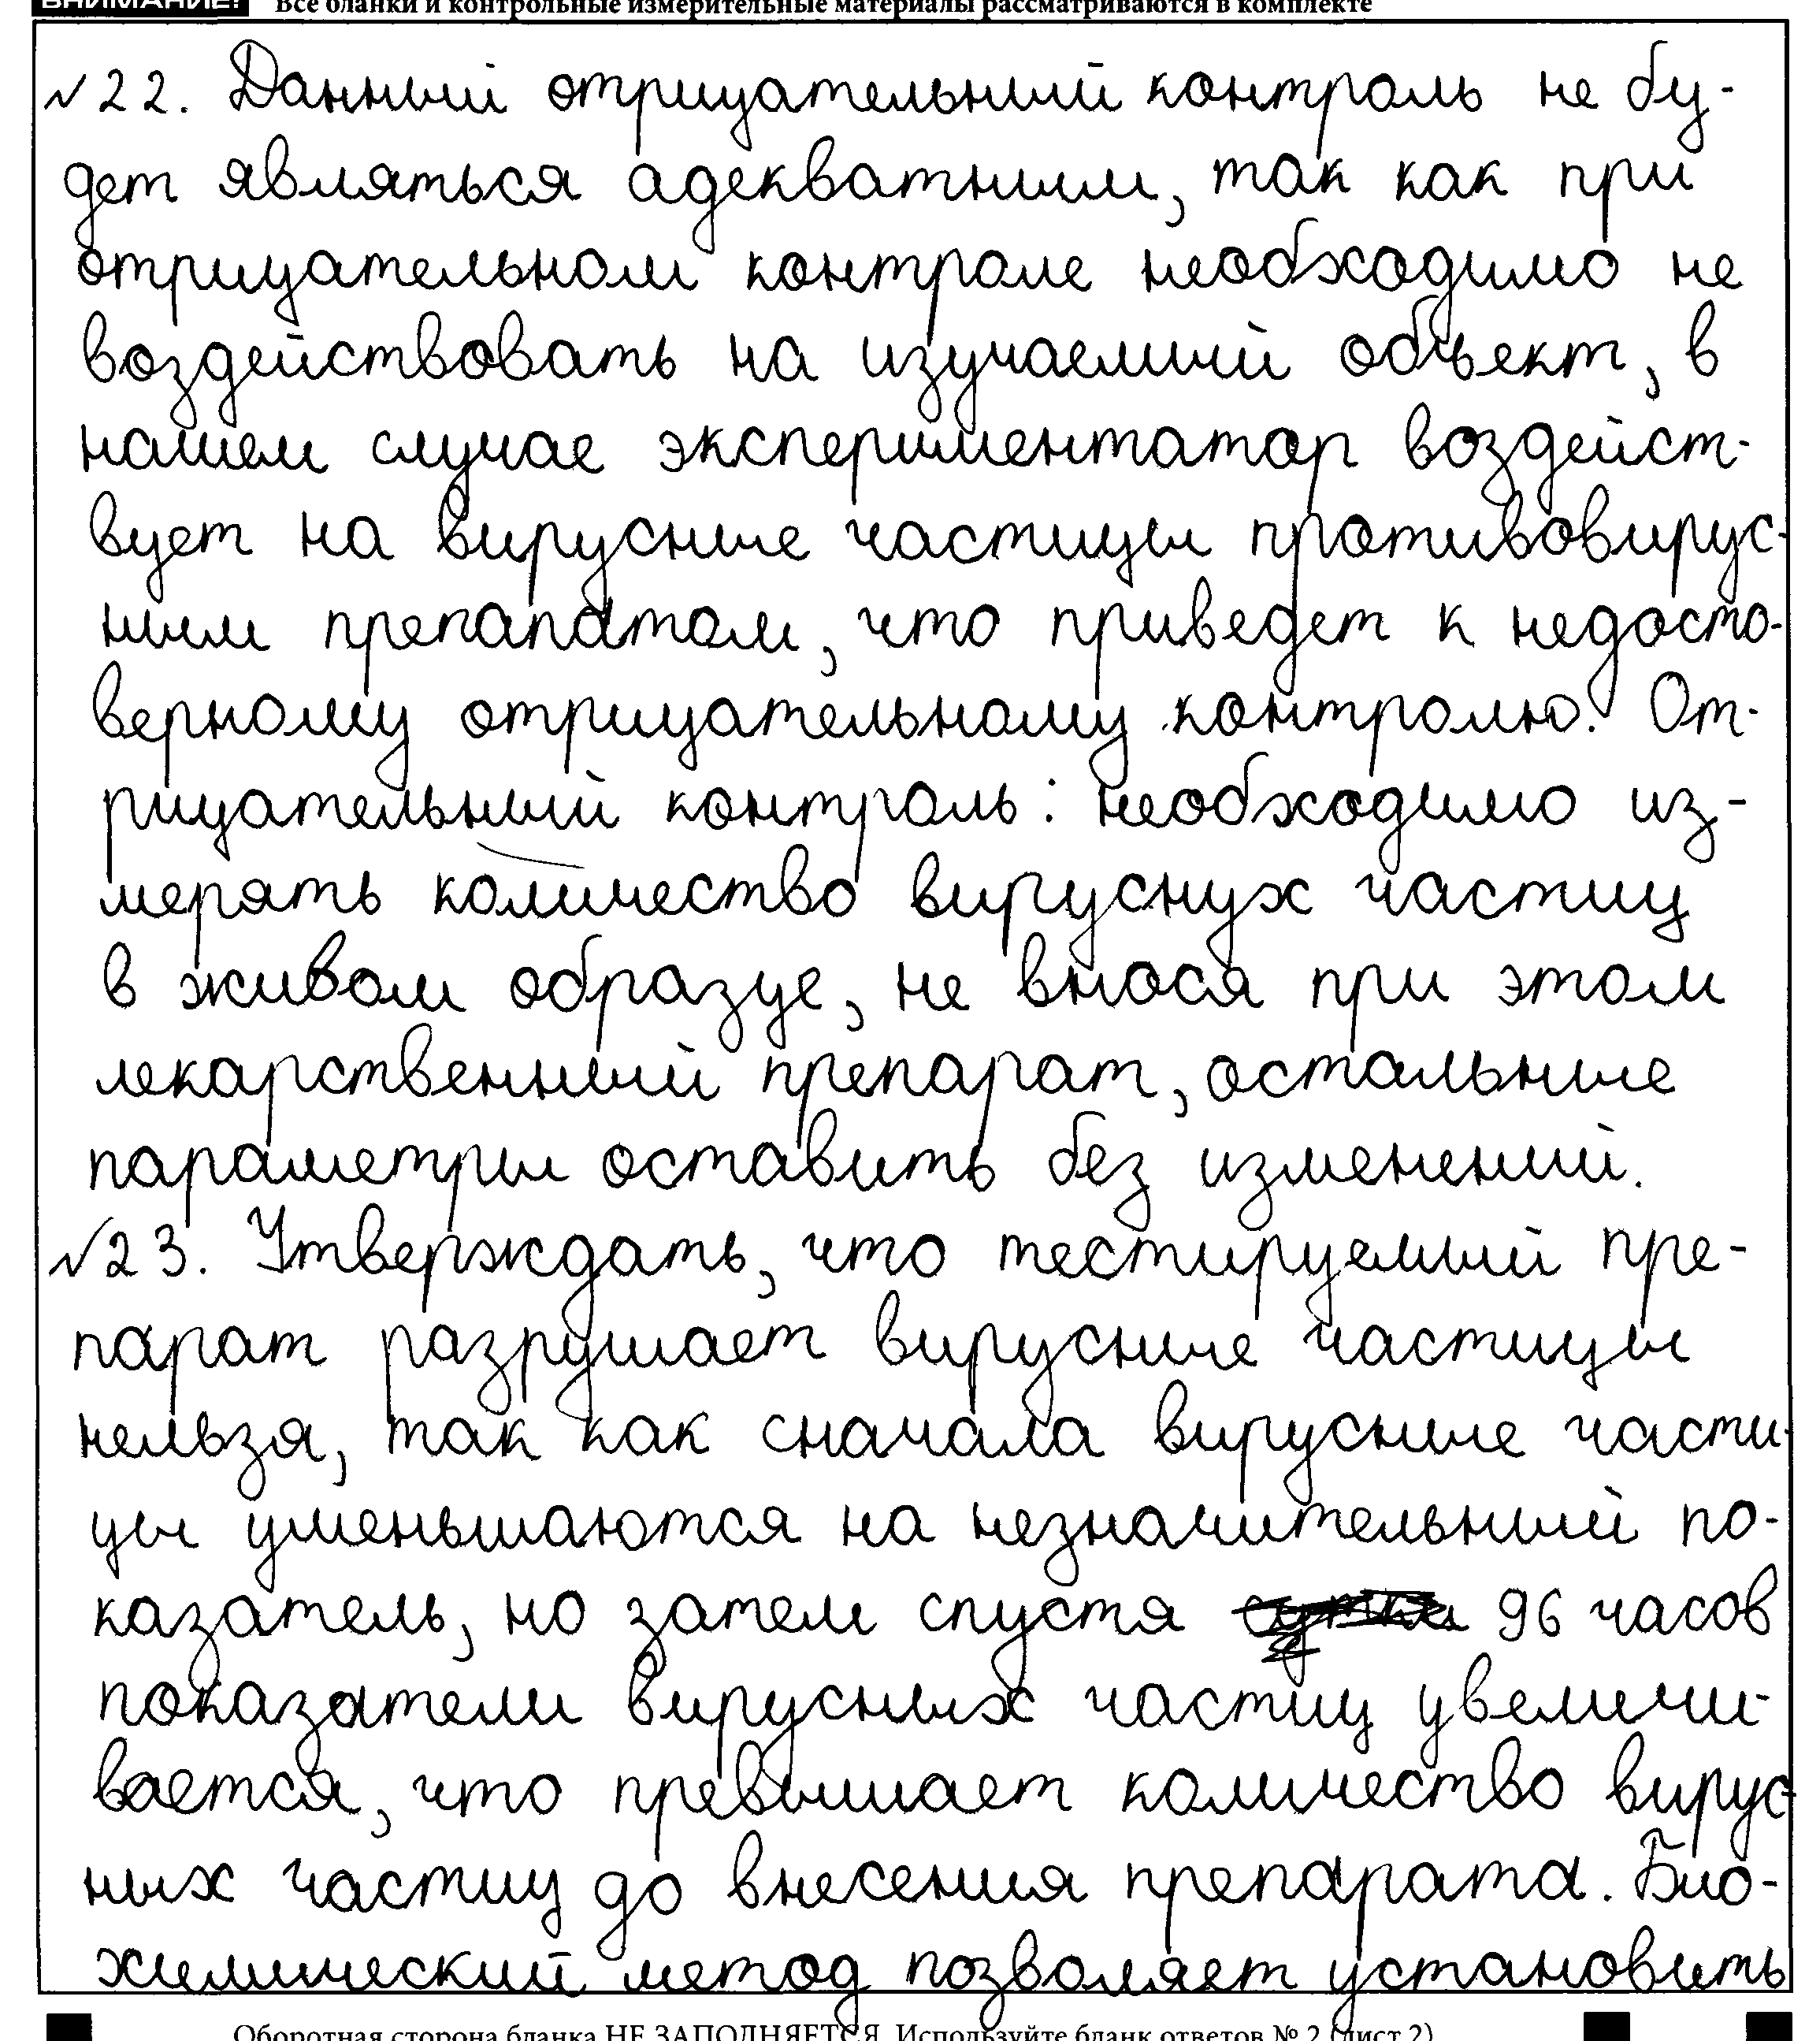 ВНИМАНИЕ! Все бланки и контрольные измерительные материалы рассматриваются в комплекте
№22. Данный отрицательный контроль не бу-
дет являться адекватным, так как при
отрицательном контроле необходимо не
воздействовать на изучаемый объект, в
нашем случае экспериментатор воздейст-
вует на вирусные частицы противовирус-
ным препаратом, что приведет к недосто-
верному отрицательному контролю. От-
рицательный контроль: необходимо из-
мерять количество вируснух частиц
в живом образце, не внося при этом
лекарственный препарат, остальные
параметры оставить без изменений.
№23. Утверждать, что тестируемый пре-
парат разрушает вирусные частицы
нельзя, так как сначала вирусные части-
цы уменьшаются на незначительный по-
казатель, но затем спустя 96 часов
показатели вирусных частиц увеличи-
вается, что превышает количество вирус-
ных частиц до внесения препарата. Био-
химический метод позволяет установить
Оборотная сторона бланка НЕ ЗАПОЛНЯЕТСЯ. Используйте бланк ответов № 2 (лист 2)